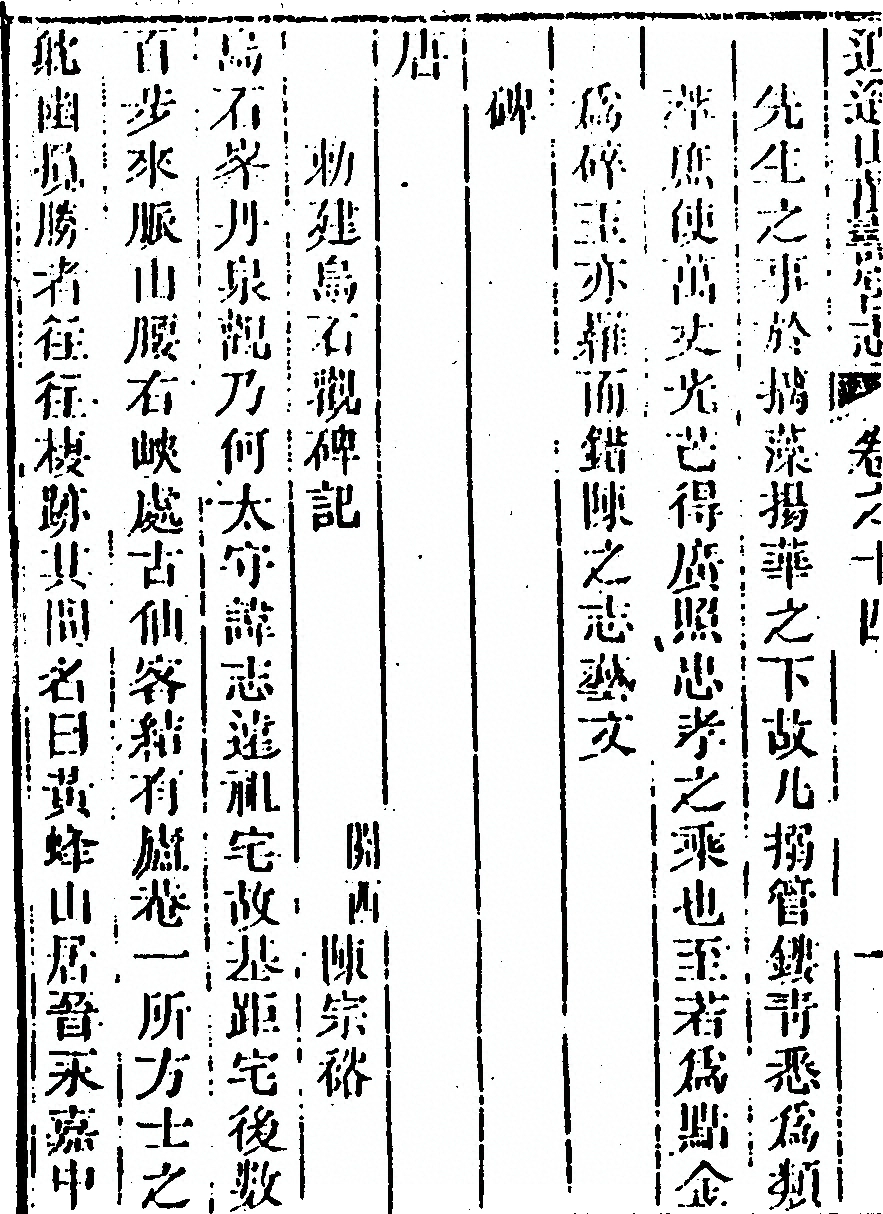 逍遙山萬壽宮志 卷之十四 一
先生之事於摛藻揚華之下故凡搦管鏤靑悉爲類
萃庶使萬丈光芒得廣照忠孝之乘也至若爲點金
爲碎玉亦羅而錯陳之志藝文
碑
唐
勅建烏石觀碑記 關西陳宗裕
烏石峯丹泉觀乃何太守諱志宅故基距宅後數
百步來脈山腰右峽處古仙客結有廬菴一所方士之
耽幽負勝者往往棲跡其間名曰黃蜂山居晉永嘉中